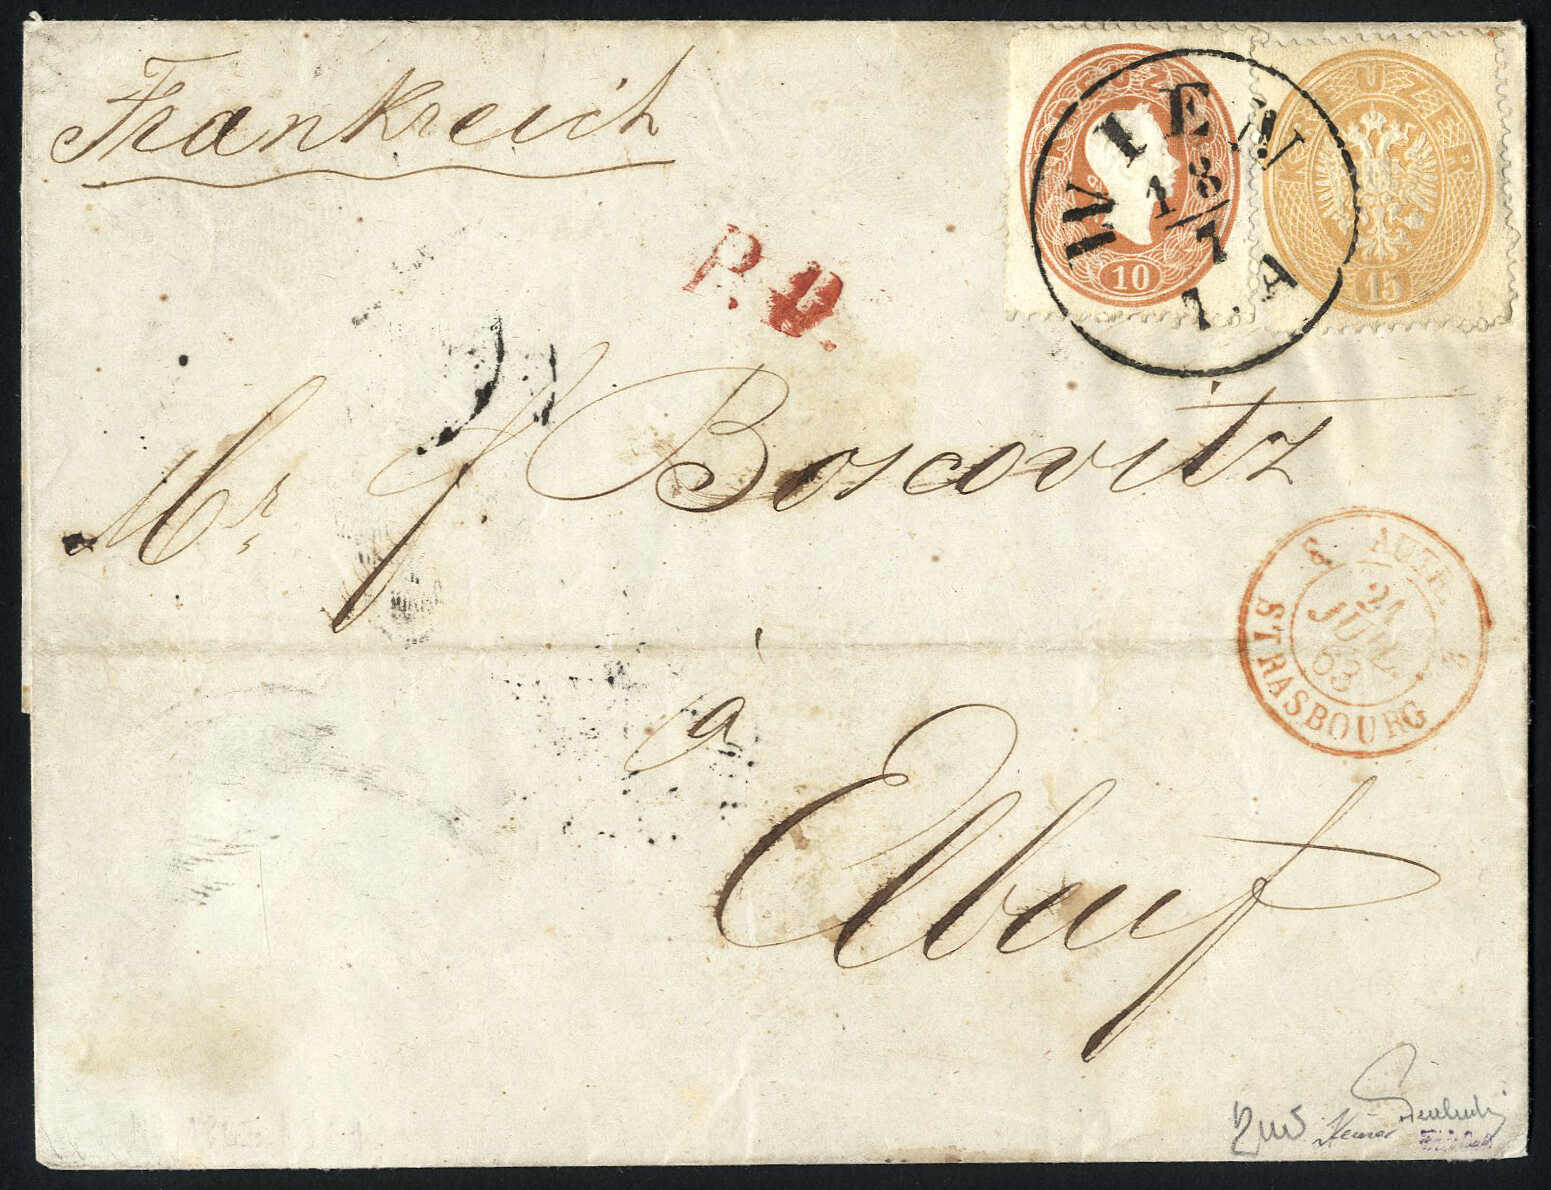 Frankreich
KREUZER
10
KREUZER
15
WIEN
18/7
1.A
P.D.
Mr. J. Boscovitz
AUTR.
21
JUIL.
63
STRASBOURG
à
Elbeuf